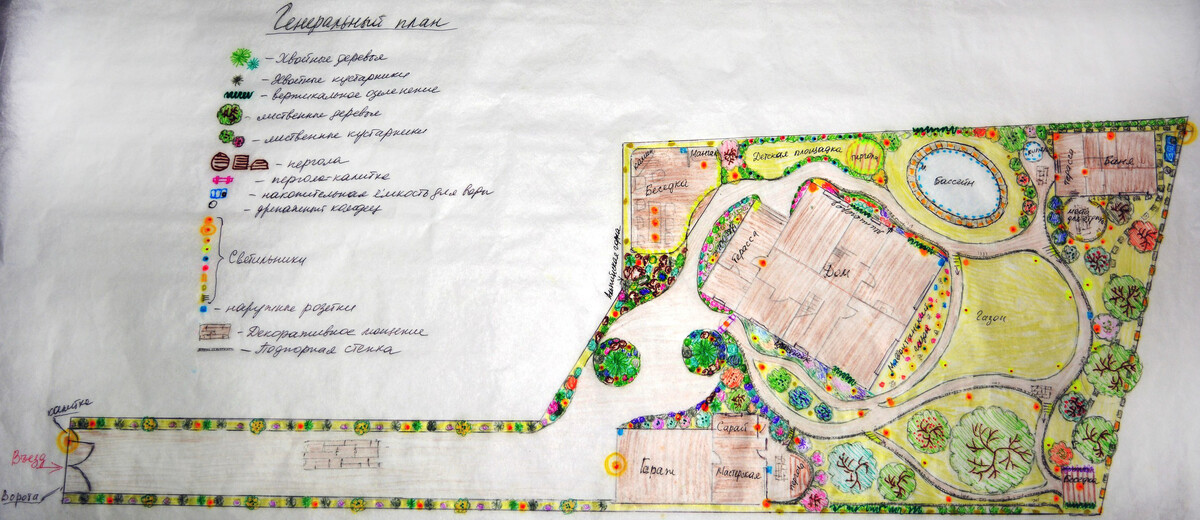 Генеральный план
- Хвойные деревья
- Хвойные кустарники
- вертикальное озеленение
- лиственные деревья
- лиственные кустарники
- пергола
- пергола-калитка
- накопительная ёмкость для воды
- дренажный колодец
Светильники
- наружные розетки
- Декоративное мощение
- Подпорная стенка
Мангал
Беседка
Детская площадка
Бассейн
терасса
Баня
Терасса
Дом
Газон
калитка
Въезд
Ворота
Гараж
Сарай
Мастерская
Беседка